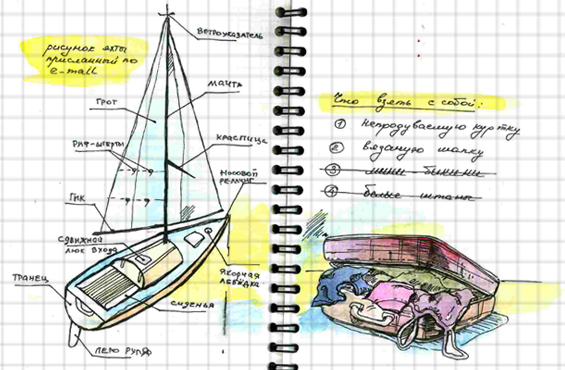 рисунок яхты
присланный по
e-mail
ВЕТРОУКАЗАТЕЛЬ
МАЧТА
ГРОТ
РИФ-ШКЕРТЫ
КРАСПИЦА
НОСОВОЙ
РЕЛИНГ
ГИК
СДВИЖНОЙ
ЛЮК ВХОДА
ЯКОРНАЯ
ЛЕБЁДКА
ТРАНЕЦ
СИДЕНЬЯ
ПЕРО РУЛЯ
Что взять с собой:
1 Непродуваемую куртку
2 Вязаную шапку
3 мини-бикини
4 белые штаны